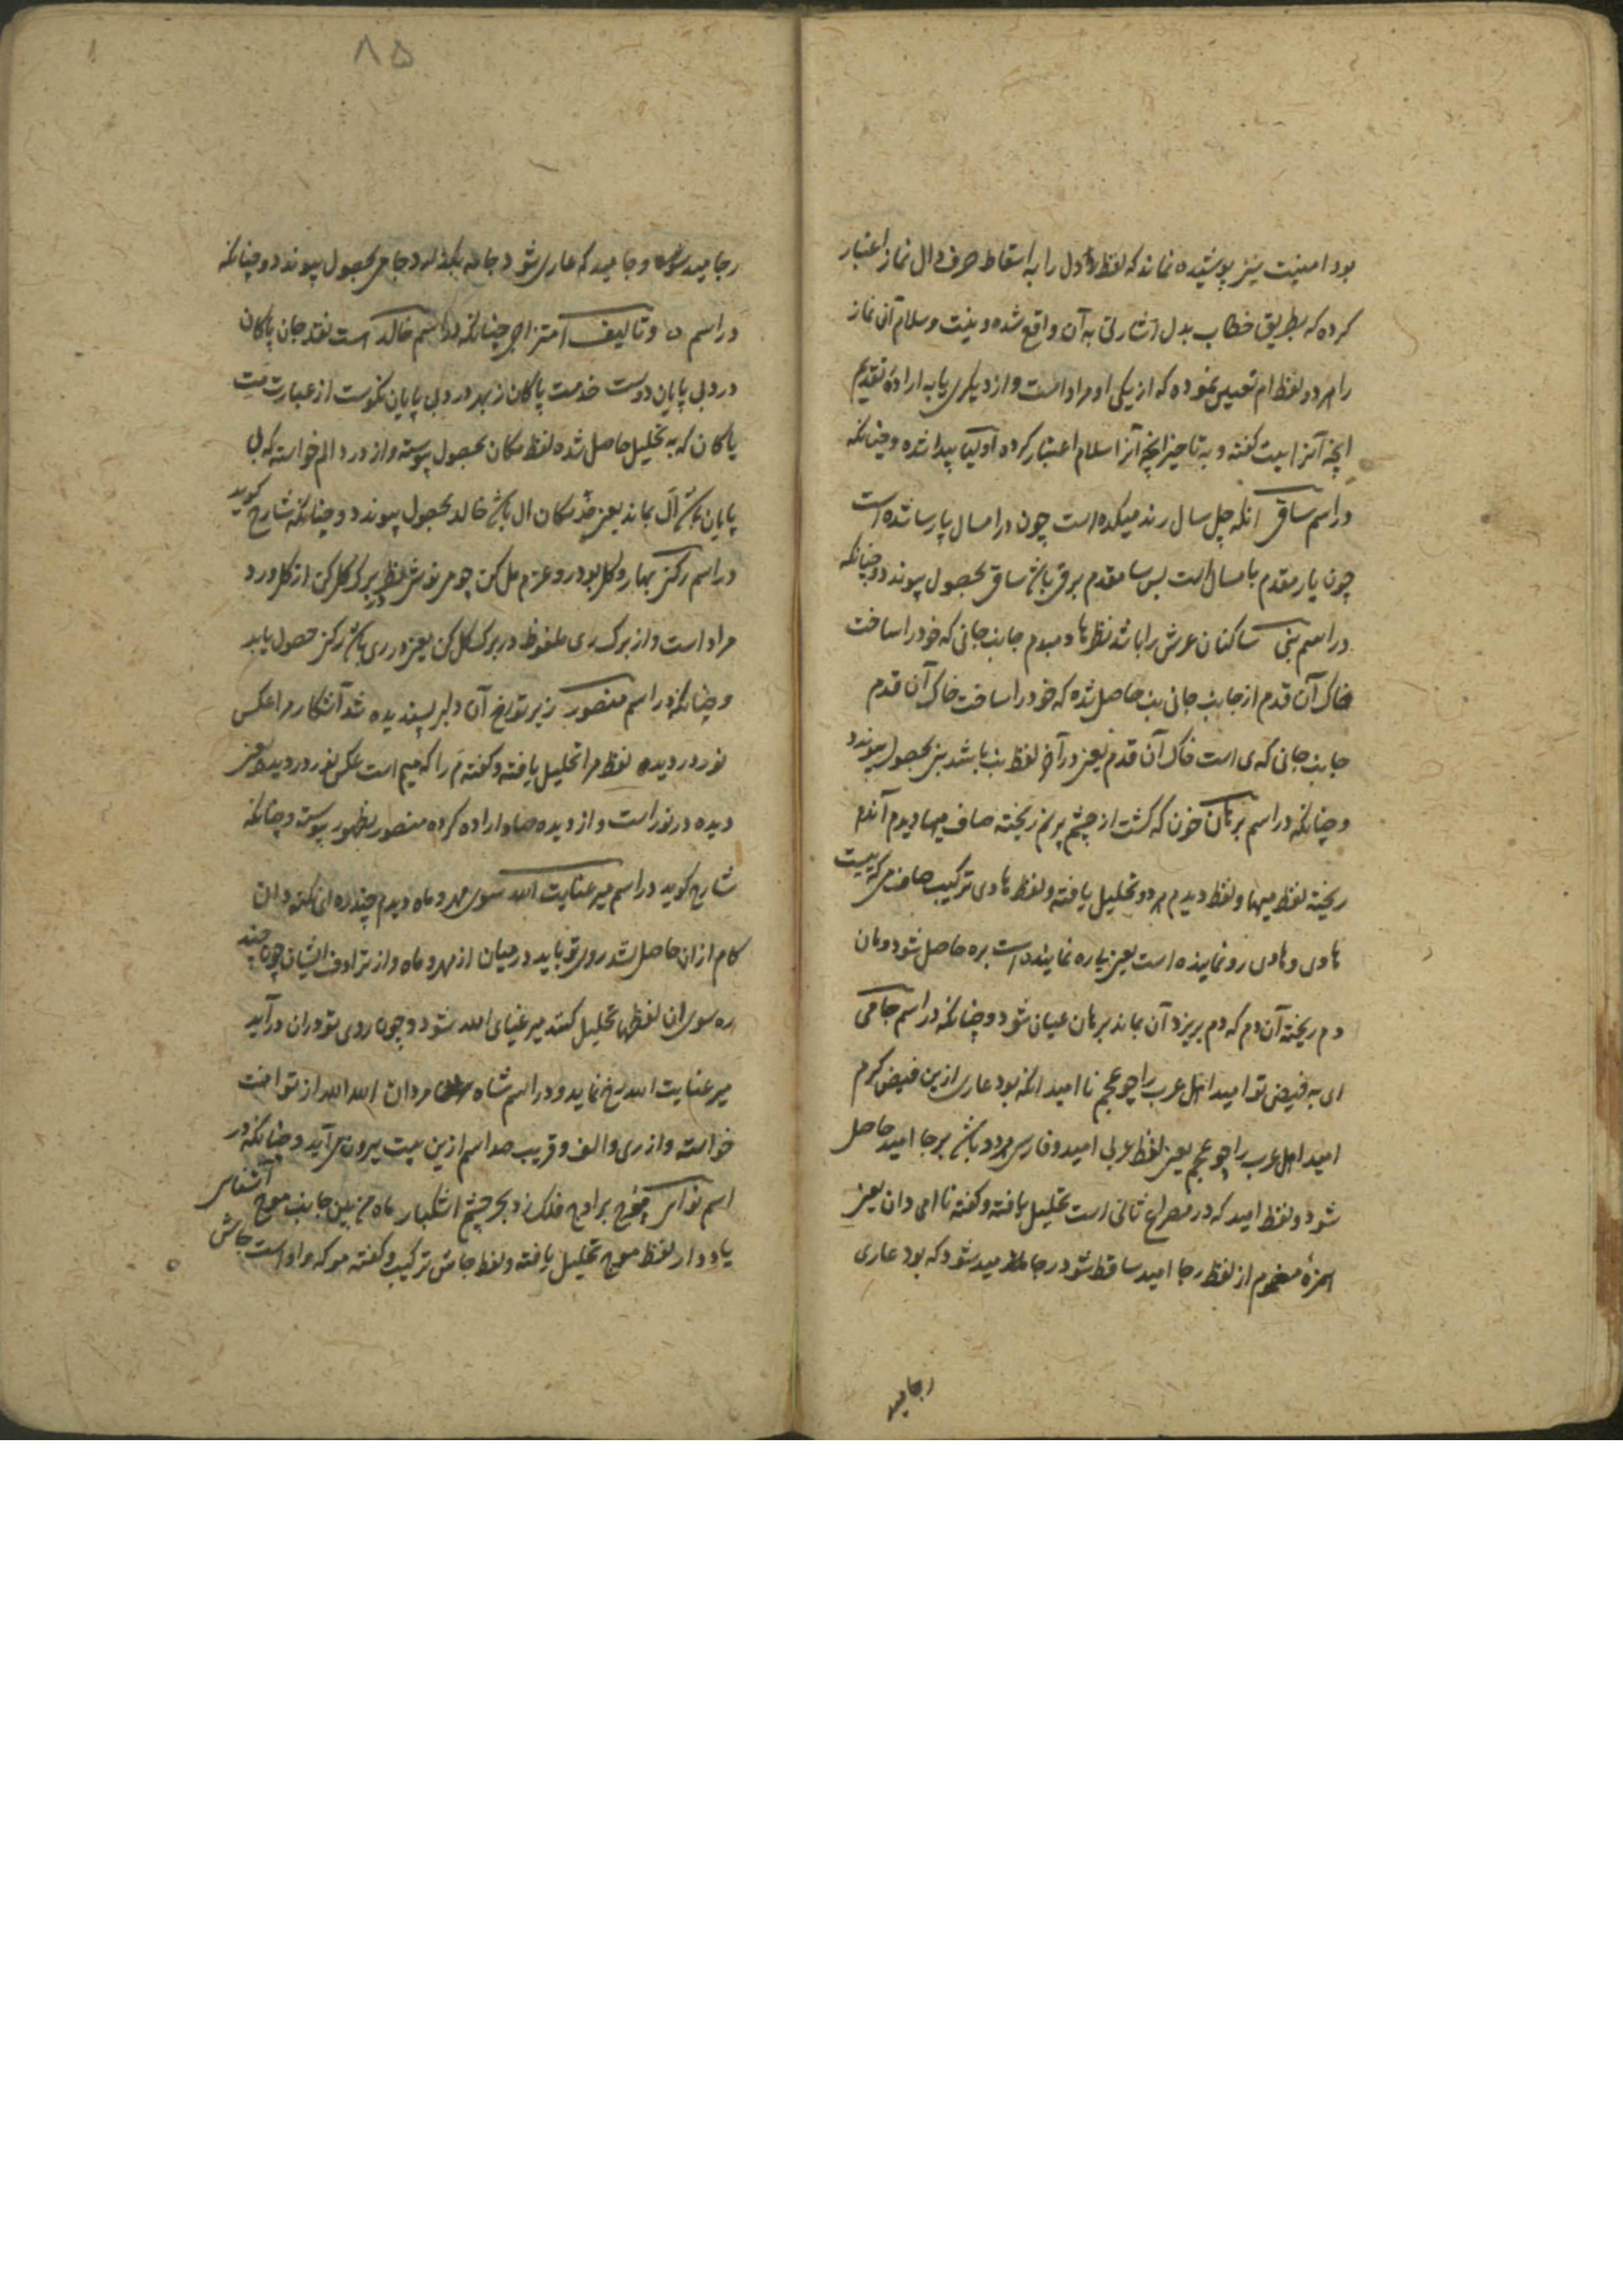 بود امنیت نیز پوشیده نماند که لفظ دل را به اسقاط حرف دال نماز اعتبار
کرده که بطریق خطاب بدل اشارتی به آن واقع شده و نیت و سلام آن نماز
را هر دو لفظ ام تعیین نموده که از یکی او مراد است و از دیگری یا به اراده تقدیم
انچه آنرا نیت گفته و به تاخیر انچه آنرا سلام اعتبار کرده اولیا پیدا شده و چنانکه
در اسم ساقی انکه چل سال رند میکده است چون در امسال پارسا شده است
چون یار مقدم با مسال است پس سا مقدم بر قی باشد ساقی بحصول پیوندد و چنانکه
در اسم بنی ساکنان عرش را باشد نظرها دمبدم جانب جانی که خود را ساخت
خاک آن قدم از جانب جانی بن حاصل شده که خود را ساخت خاک آن قدم
جانب جانی که ی است خاک آن قدم یعنی در آخر لفظ بن باشد بنی بحصول پیوندد
و چنانکه در اسم برهان خون که گشت از چشم پر نم ریخته صاف میها دیدم آندم
ریخته لفظ میها و لفظ دیدم هر دو تحلیل یافته و لفظ هادی ترکیب صاف می که بیست
هادی و هادی رو نماینده است یعنی یا ره نماینده است بره حاصل شود و هان
دم ریخته آن دم که دم بریزد آن بماند برهان عیان شود و چنانکه در اسم جامی
ای به فیض تو امید اهل عرب را چو عجم نا امید انکه بود عاری ازین فیض کرم
امید اهل عرب را چو عجم یعنی لفظ عربی امید و فارسی هر دو باشد بر جا امید حاصل
شود و لفظ امید که در مصراع ثانی است تحلیل یافته و گفته نا امی دان یعنی
همزهٔ مضموم از لفظ رجا امید ساقط شود رجا مید شود که بود عاری
رجا مید
۸۵
رجا مید شود و جا مید که عاری شود جامه بگذارد جامی بحصول پیوندد و چنانکه
در اسم و تالیف امتزاجی چنانکه در اسم خالد است نقد جان پاکان
درد بی پایان دوست خدمت پاکان ز بهر درد بی پایان نکوست از عبارت مت
پاکان که به تحلیل حاصل شده لفظ مکان بحصول پیوسته و از درد الم خواسته که بی
پایان باشد ال بماند یعنی خد مکان ال باشد خالد بحصول پیوندد و چنانکه شارح گوید
در اسم رکن بهار و گل بود رو عزم مل کن چو می نوش نظر بر برگ گل کن از گل ورد
مراد است و از برگ ری ملفوظ در برگ گل کن یعنی در ری باشد رکن حصول یابد
و چنانکه در اسم منصور زیر تو رخ آن دلبر پسندیده شد آشکار مرا عکس
نور در دیده لفظ مرا تحلیل یافته و گفته م را که میم است عکس نور در دیده یعنی
دیده در نور است و از دیده صاد اراده کرده منصور بظهور پیوسته و چنانکه
شارح گوید در اسم میر عنایت الله سوی مهر و ماه دیدم چند ره ای نکته دان
کام از ان حاصل نشد روی تو باید در میان از مهر و ماه و از ترادف ایشان چون چند
ره سوی ان لفظها تحلیل کنند میر عنیای الله شود و چون روی تو در ان درآید
میر عنایت الله رخ نماید و در اسم شاه مردان الله الله از تو امنت
خواسته و از ری و الف و قریب صد اسم ازین بیت بیرون می آید و چنانکه در
اسم نواس موج بر اوج فلک زد بحر چشم اشکبار ماه من بین جانب موج آشنایی
یاد دار لفظ موج تحلیل یافته و لفظ جانش ترکیب و گفته مو که واو است جاش